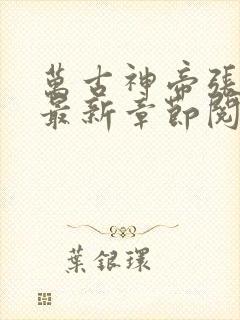 萬古神帝張
最新章節閱
葉銀環